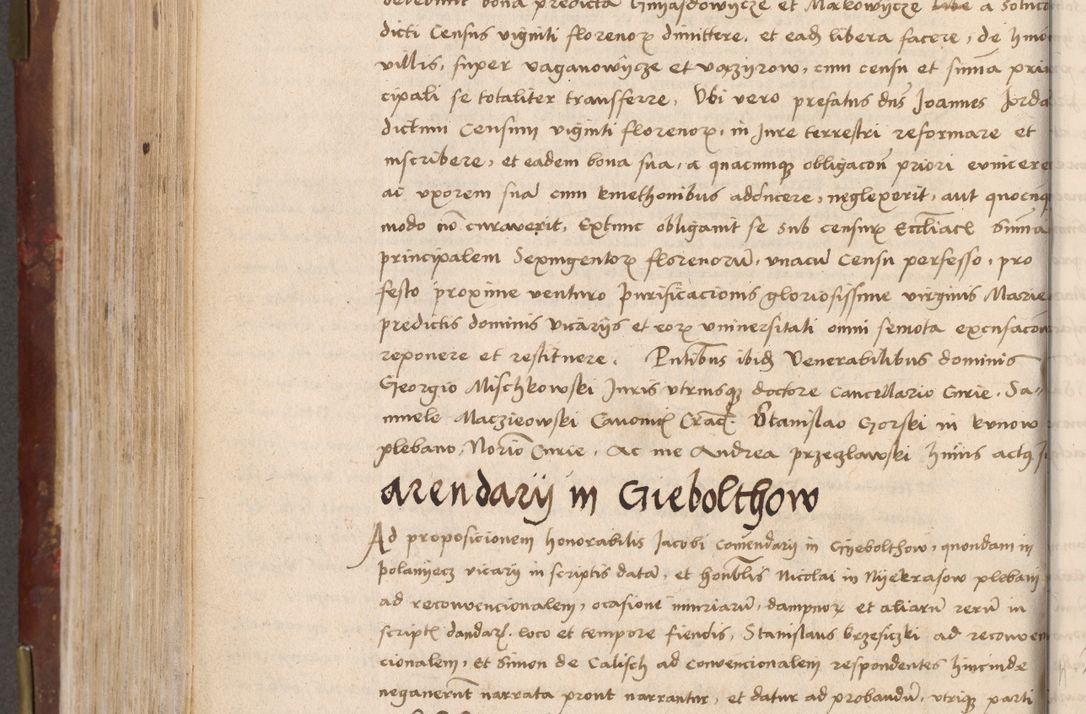 debebunt bona predicta Gnyasdowycze et Makowycze a solucione
dicti Census viginti florenorum dimittere, et eadem libera facere, de hmoi
villis, super vaganowycze et vazyrow, cum censu et summa prin
cipali se totaliter transferre, Ubi vero prefatus dns Joannes Jorda
dictum Censum viginti florenorum, in Jure terrestri reformare et
inscribere, et eadem bona sua, a quacumque obligacone priori evincere
ac uxorem suam cum kmethonibus adducere, neglexerit, aut quocunque
modo non curaverit, Extunc obligavit se sub censuris Eccliacis summam
principalem Sexingentorum florenorum, unacum Censu perfesso, pro
festo proxime venturo Purificacionis gloriosissime virginis Marie
predictis dominis vicarijs et eorum universitati omni semota excusacone
reponere et restituere. Pntibus ibidem Venerabilibus dominis
Georgio Mischkowski Juris utriusque doctore Cancellario Curie, Sa=
muele Macziejowski Canonicis Crac. Stanislao Gorski in kunow
plebano, Notario Curie, Ac me Andrea przeczlawski huius actus
arendarij in Giebolthow
Ad proposicionem honorabilis Jacobi Comendarij in Gyebolthow, quondam in
polaniecz vicarij in scriptis datam, et honorabilis Nicolai in Nyekrasow plebani
ad reconvencionalem, ocasione iniuriarum, dampnorum et aliarum rerum in
scriptis dandarum. loco et tempore fiendis, Stanislaus brzesiczki ad reconven
cionalem, et Simon de Calisch ad Convencionalem respondentes hincinde
negaverunt narrata prout narrantur, et datur ad probandum, utrique parti